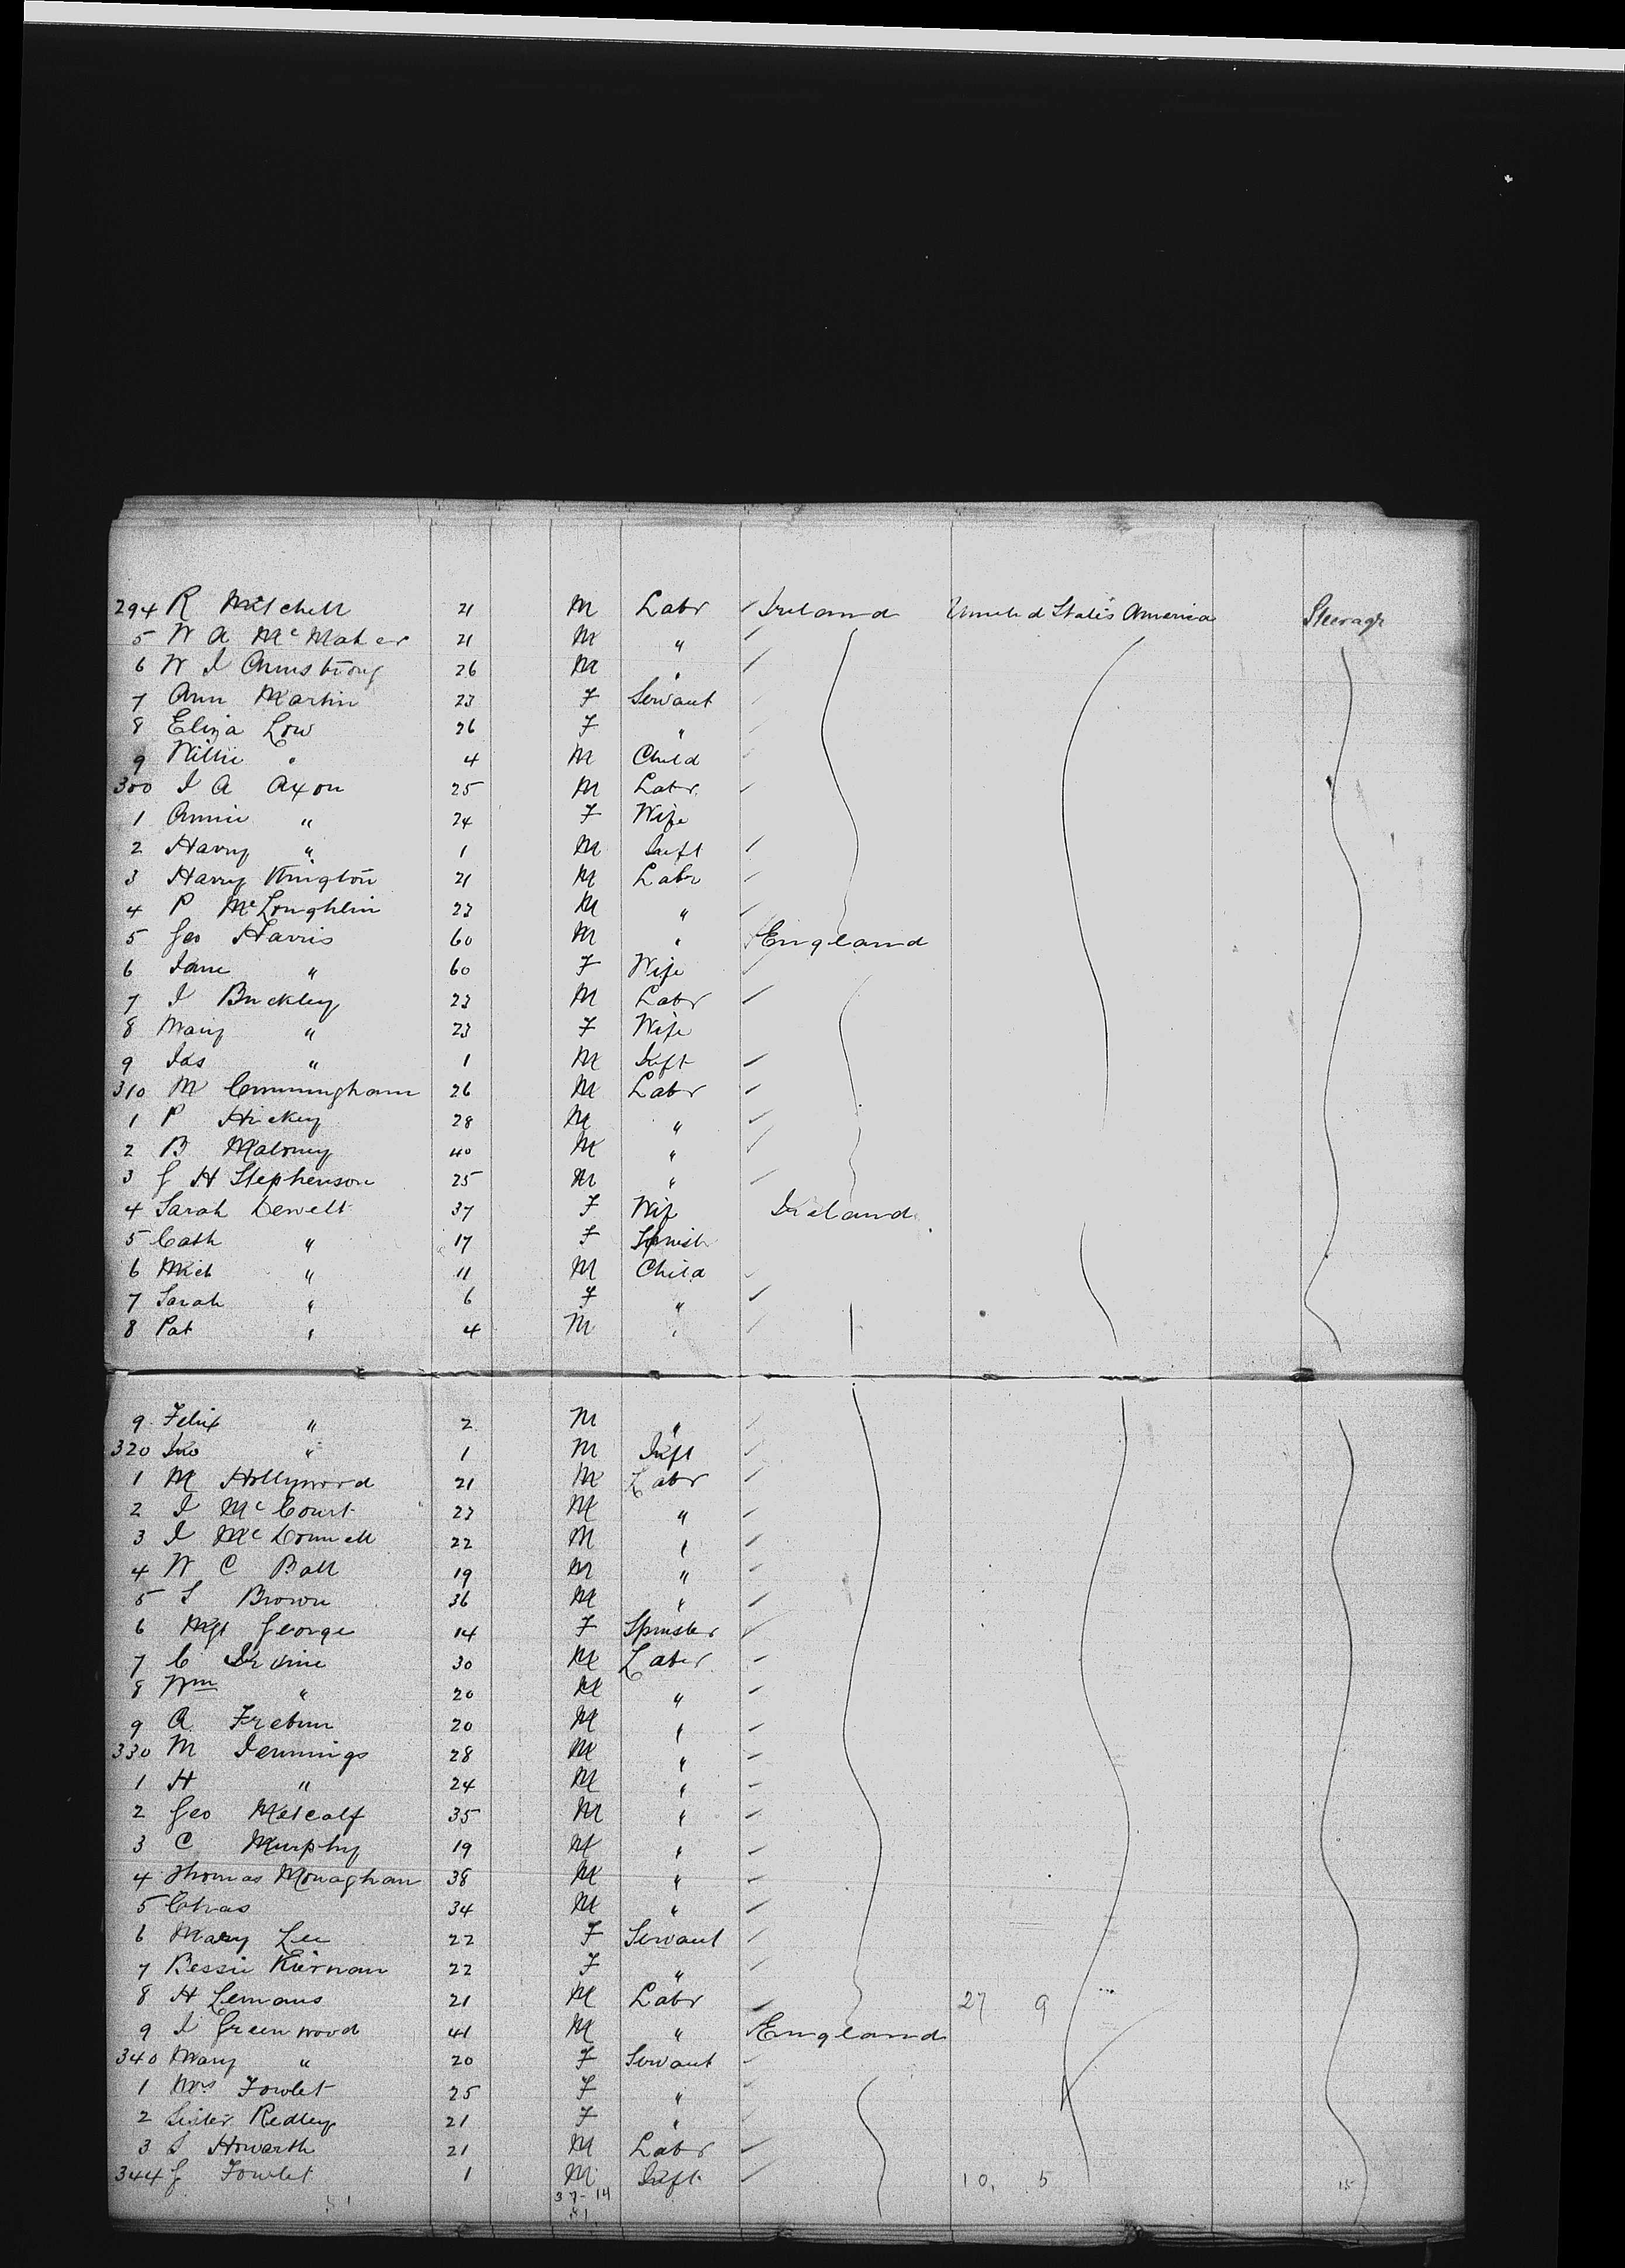 294 R Mitchell 21 M Labr Ireland United States America Steerage
5 W A McMaher 21 M "
6 W J Armstrong 26 M "
7 Ann Martin 23 F Servant
8 Eliza Low 26 F "
9 Willie " 4 M Child
300 J A Axon 25 M Labr
1 Annie " 24 F Wife
2 Harry " 1 M Inft
3 Harry 21 M Labr
4 P McLoughlin 23 M "
5 Geo Harris 60 M " England
6 Jane " 60 F Wife
7 J Buckley 23 M Labr
8 Mary " 23 F Wife
9 Jas " 1 M Inft
310 M Cunningham 26 M Labr
1 P Hickey 28 M "
2 B Maloney 40 M "
3 G H Stephenson 25 M "
4 Sarah Dewelt 37 F Wife Ireland
5 Cath " 17 F Spinst
6 Mich " 11 M Child
7 Sarah " 6 F "
8 Pat " 4 M "
9 Felix " 2 M "
320 Jno " 1 M Inft
1 M Hollywood 21 M Labr
2 J McCourt 23 M "
3 J McDonnell 22 M "
4 W C Ball 19 M "
5 S Brown 36 M "
6 Mgt George 14 F Spinster
7 C Irvine 30 M Labr
8 Wm " 20 M "
9 A 20 M "
330 M Jennings 28 M "
1 H " 24 M "
2 Geo Metcalf 35 M "
3 C Murphy 19 M "
4 Thomas Monaghan 38 M "
5 Chas 34 M "
6 Mary Lee 22 F Servant
7 Bessie Kiernan 22 F "
8 H Lemans 21 M Labr 27 9
9 J Greenwood 41 M " England
340 Mary " 20 F Servant
1 Mrs Fowlet 25 F "
2 Sister Redley 21 F "
3 S Howarth 21 M Labr
344 G Fowlet 1 M Inft 10, 5 15
51 37-14
51